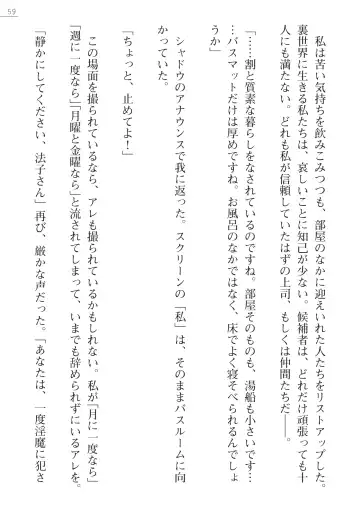 59
私は苦い気持ちを飲みこみつつも、部屋のなかに迎えいれた人たちをリストアップした。
裏世界に生きる私たちは、哀しいことに知己が少ない。候補者は、どれだけ頑張っても十
人にも満たない。どれも私が信頼していたはずの上司、もしくは仲間たちだ――。
「……割と質素な暮らしをなされているのですね。部屋そのものも、湯船も小さいです…
…バスマットだけは厚めですね。お風呂のなかではなく、床でよく寝そべられるんでしょ
うか」
シャドウのアナウンスで我に返った。スクリーンの「私」は、そのままバスルームに向
かっていた。
「ちょっと、止めてよ!」
この場面を撮られているなら、アレも撮られているかもしれない。私が「月に一度なら」
「週に一度なら」「月曜と金曜なら」と流されてしまって、いまでも辞められずにいるアレを。
「静かにしてください、法子さん」再び、厳かな声だった。「あなたは、一度淫魔に犯さ